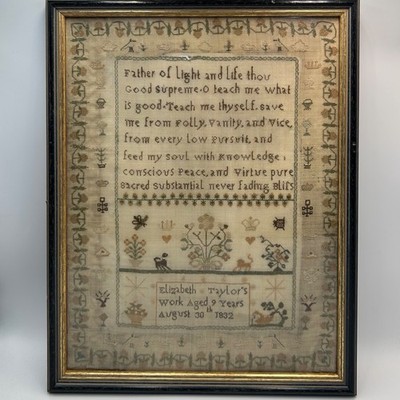 Father of light and life thou
Good Supreme O teach me what
is good Teach me thyself Save
me from Folly, Vanity, and Vice,
from every low Pursuit, and
feed my soul with Knowledge,
conscious Peace, and Virtue pure
Sacred substantial never fading Bliss
Elizabeth Taylor's
Work Aged 9 Years
August 30th 1832